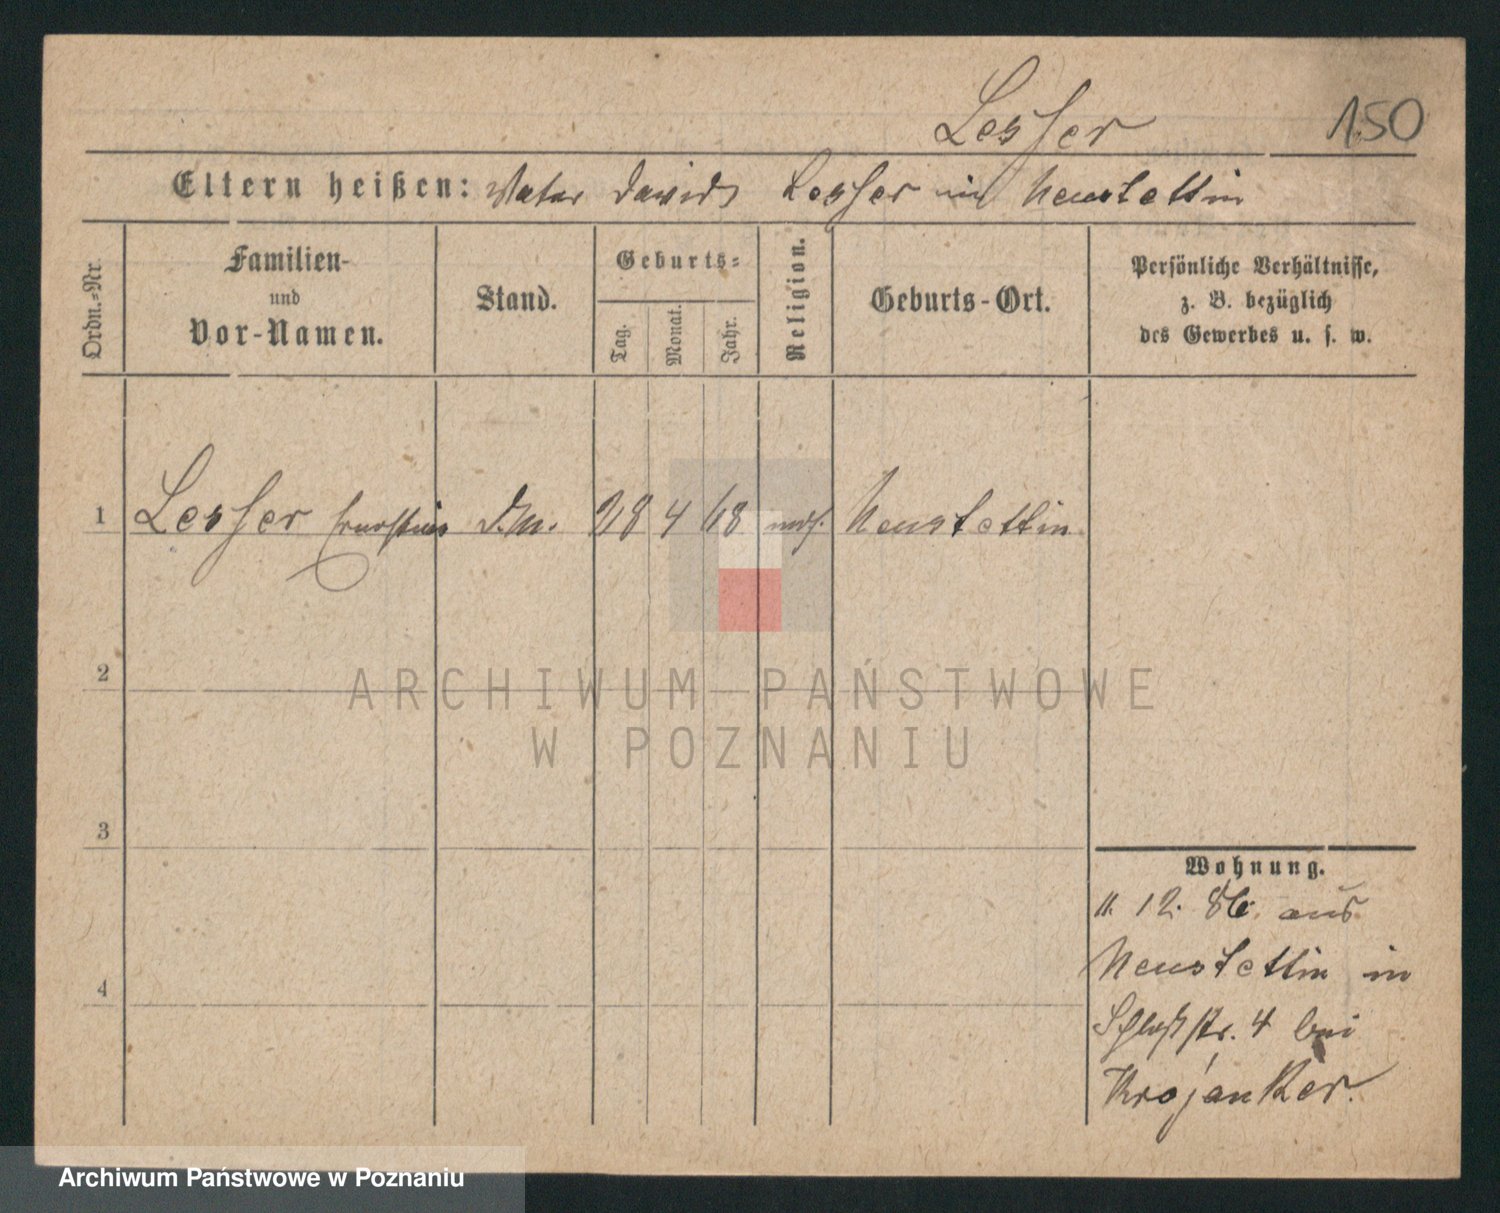 Lesser
150
Eltern heißen: Vater David Lesser in Neustettin
Ordn.-Nr.
Familien-
und
Vor-Namen.
Stand.
Geburts-
Tag.
Monat.
Jahr.
Religion.
Geburts-Ort.
Persönliche Verhältnisse,
z. B. bezüglich
des Gewerbes u. s. w.
1 Lesser Ernestine 28 4 68 mos. Neustettin
2
3
4
Wohnung.
11. 12. 86. aus
Neustettin in
Schloßstr. 4 bei
Krojanker.
ARCHIWUM PAŃSTWOWE
W POZNANIU
Archiwum Państwowe w Poznaniu